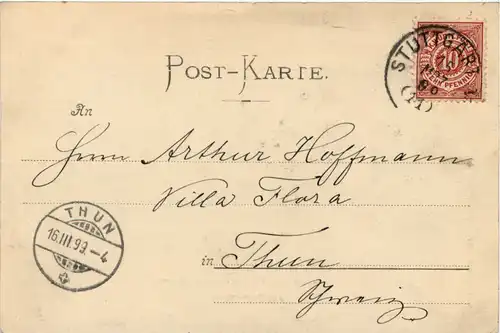 STUTTGART
(11)
10
ZEHN PFENNIG
POST-KARTE.
An
Herrn Arthur Hoffmann
Villa Flora
THUN
16.III.99.-4
in Thun
Schweiz